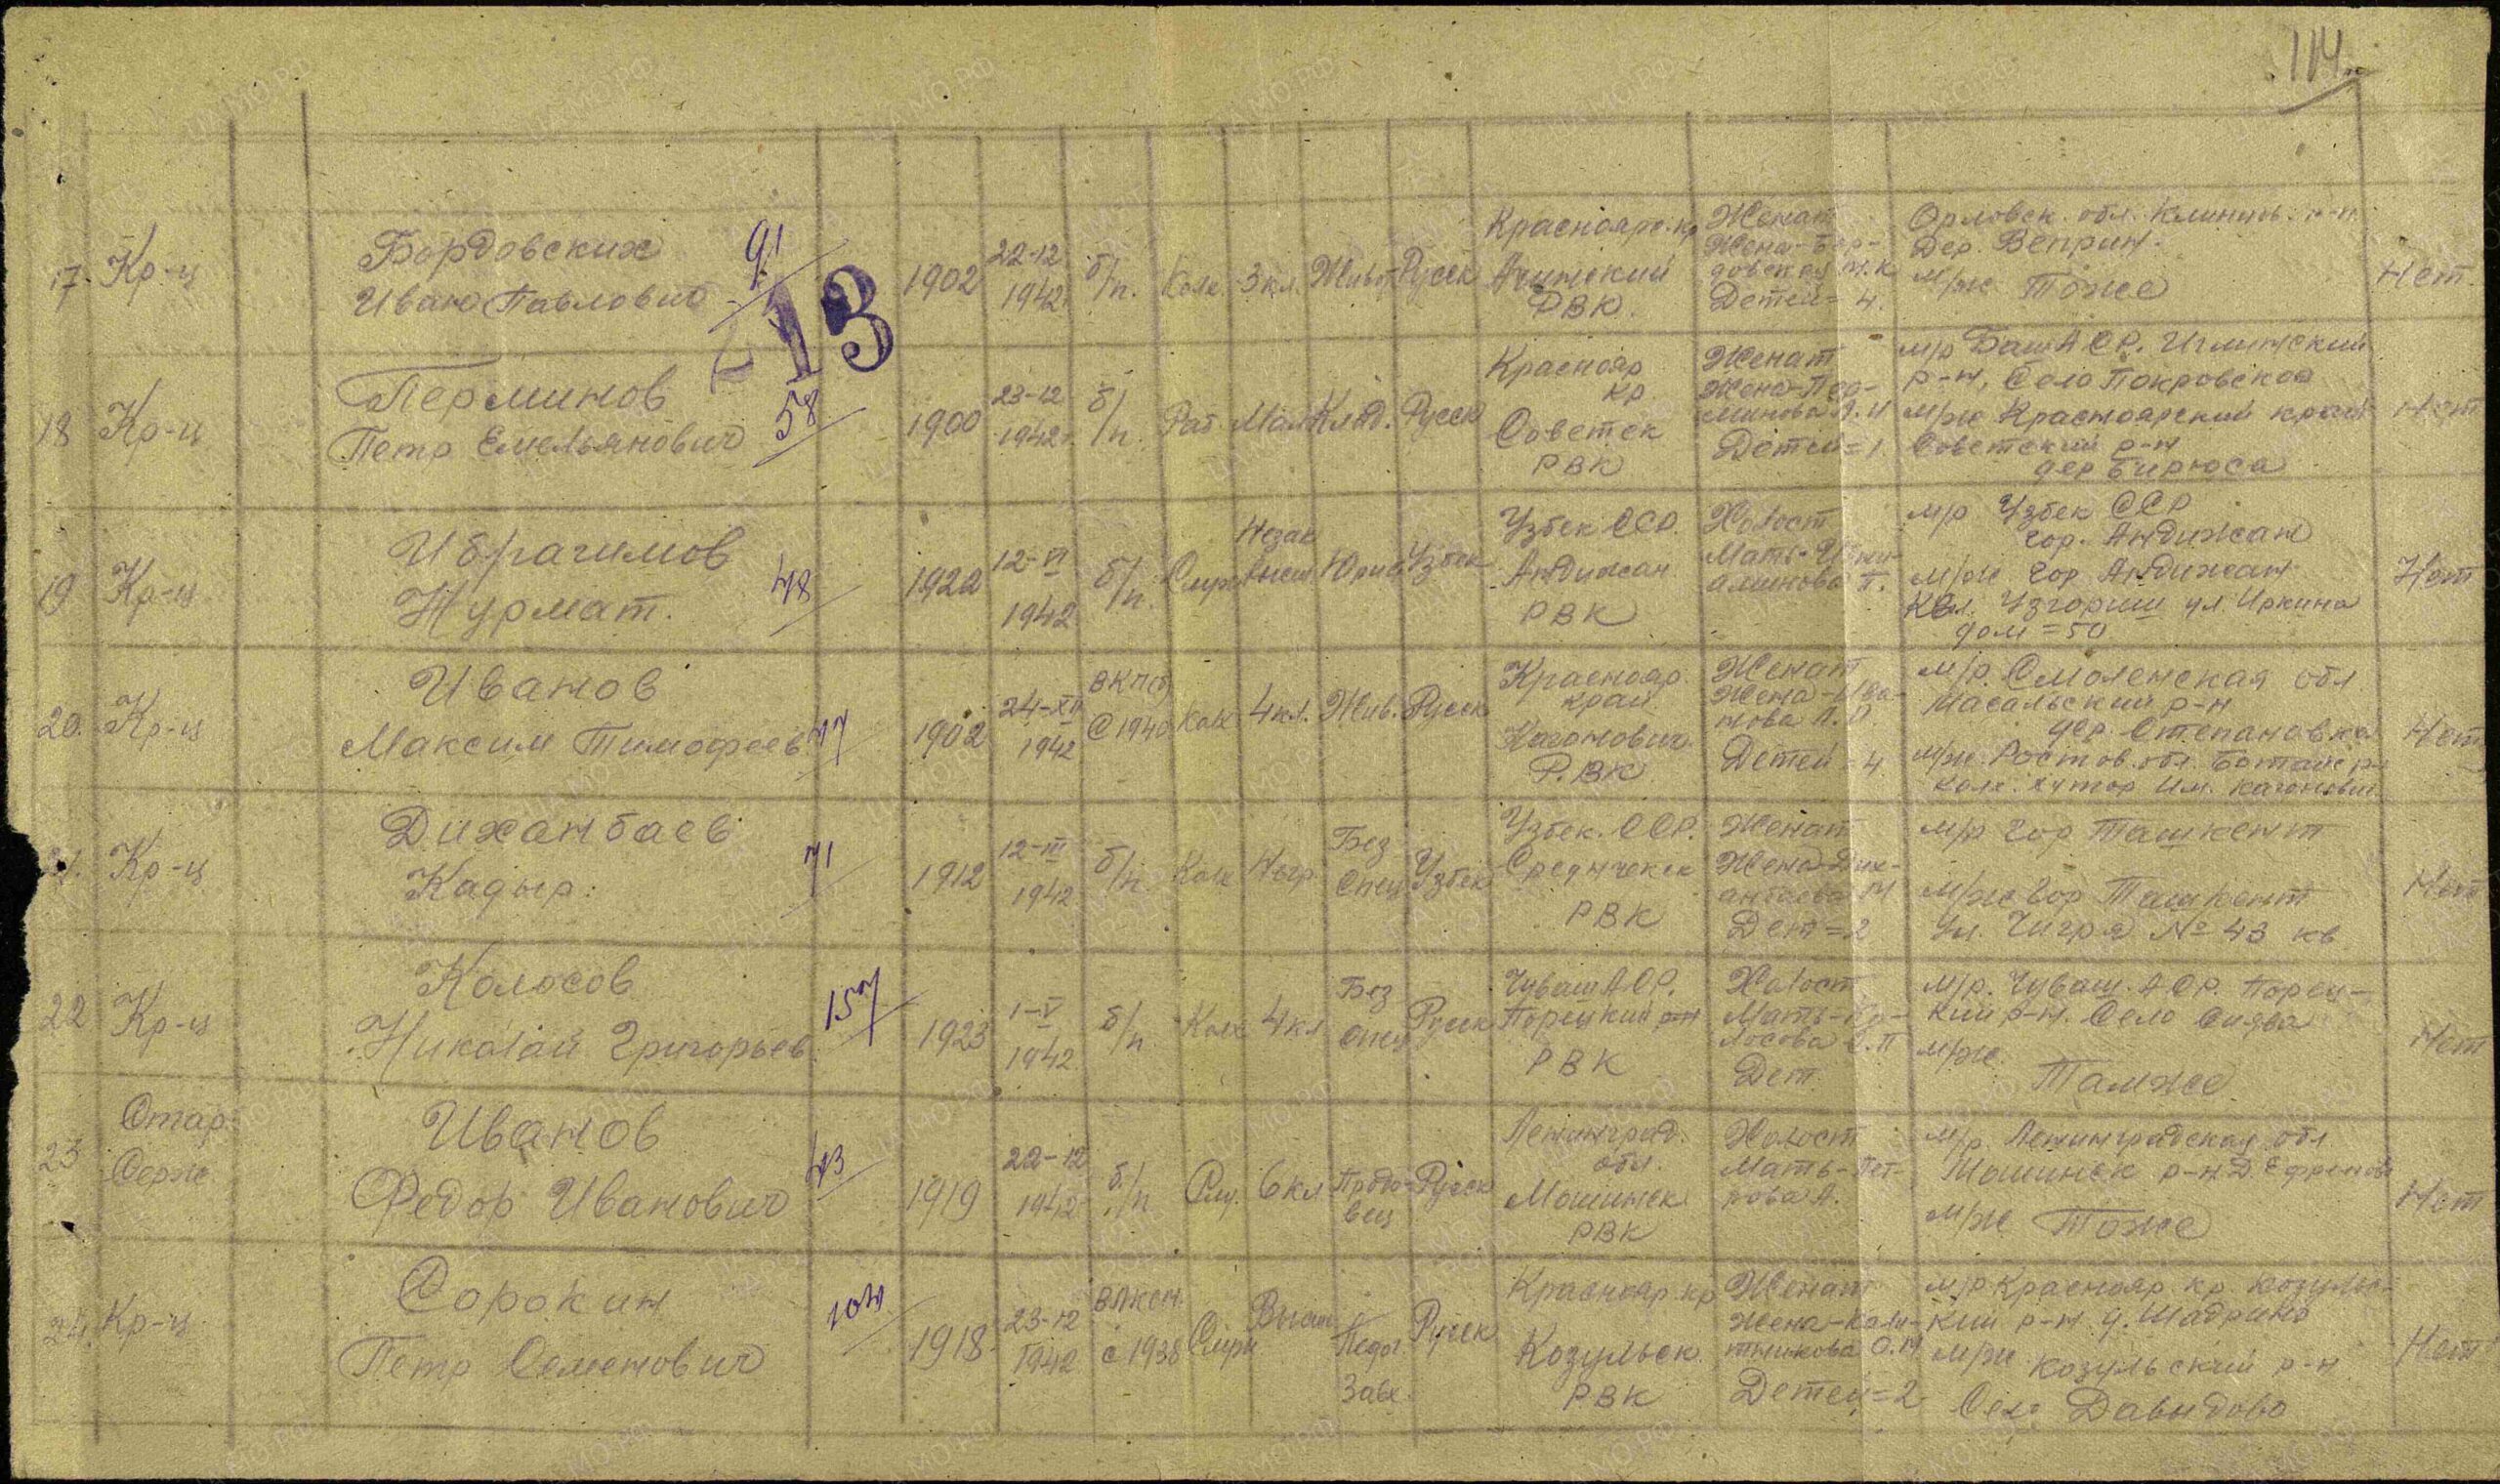 114
17. Кр-ц Бордовских Иван Павлович 91 1902 22-12 1942 б/п. Колх 3 кл. Живот Русск Красноярс. кр Ачинский РВК. Женат Жена-Бордовская Детей=4. Орловск. обл. р-н Дер. Веприн. м/ж Тоже Нет.
13
18 Кр-ц Перминов Петр Емельянович 58 1900 23-12 1942г. б/п. Раб. Мал Клад. Русск Краснояр кр Советск РВК Женат Жена-Перминова Детей=1 м/р БашАСР. Иглинский р-н, Село Покровское м/ж Красноярский край Советский р-н дер Бирюса Нет
19 Кр-ц Ибрагимов Нурмат. 48 1922 12-VI 1942 б/п. Служ Незак высш Юрис Узбек Узбек ССР. Андижан РВК Холост Мать- П. м/р Узбек ССР гор. Андижан м/ж гор Андижан Квл. ул. Иркина дом=50 Нет
20. Кр-ц Иванов Максим Тимофеев. 77 1902 24-XII 1942 ВКП(б) С 1940 Колх 4 кл. Жив. Русск Краснояр. край Кагонович. Р.ВК Женат Жена-Иванова Детей-4 м/р. Смоленская обл Масальский р-н дер. Степановка м/ж. Ростов. обл. колх. хутор Им. Кагонович Нет
21. Кр-ц Дихапбаев Кадыр. 71 1912 12-III 1942 б/п. Колх Негр Без Спец Узбек Узбек. ССР. РВК Женат Жена Дет=2 м/р гор Ташкент м/ж гор Ташкент Ул. Чигря № 43 кв Нет
22 Кр-ц Колосов Николай Григорьев. 157 1923 1-V 1942 б/п. Колх 4 кл Без спец Русск ЧувашАСР. Порецкий р-н РВК Холост Мать-Колосова Дет. м/р. Чуваш. АСР. Порецкий р-н. Село Сиява м/ж. Тамже Нет
23 Стар. Серж Иванов Федор Иванович 43 1919 22-12 1942 б/п Служ. 6 кл Русск Ленинград. обл. Мошинск РВК Холост Мать-Петрова А. м/р. Ленинградская обл Мошинск р-н Д. Ефремово м/ж Тоже Нет
24. Кр-ц Сорокин Петр Семенович 104 1918 23-12 1942 ВЛКСМ. с 1938 Служ Высш Педог Завх. Русск Краснояр. кр Козульск. РВК Женат Жена-Калитникова О.М Детей=2 м/р Краснояр. кр Козульский р-н д. Шадрино м/ж Козульский р-н Село Давыдово Нет